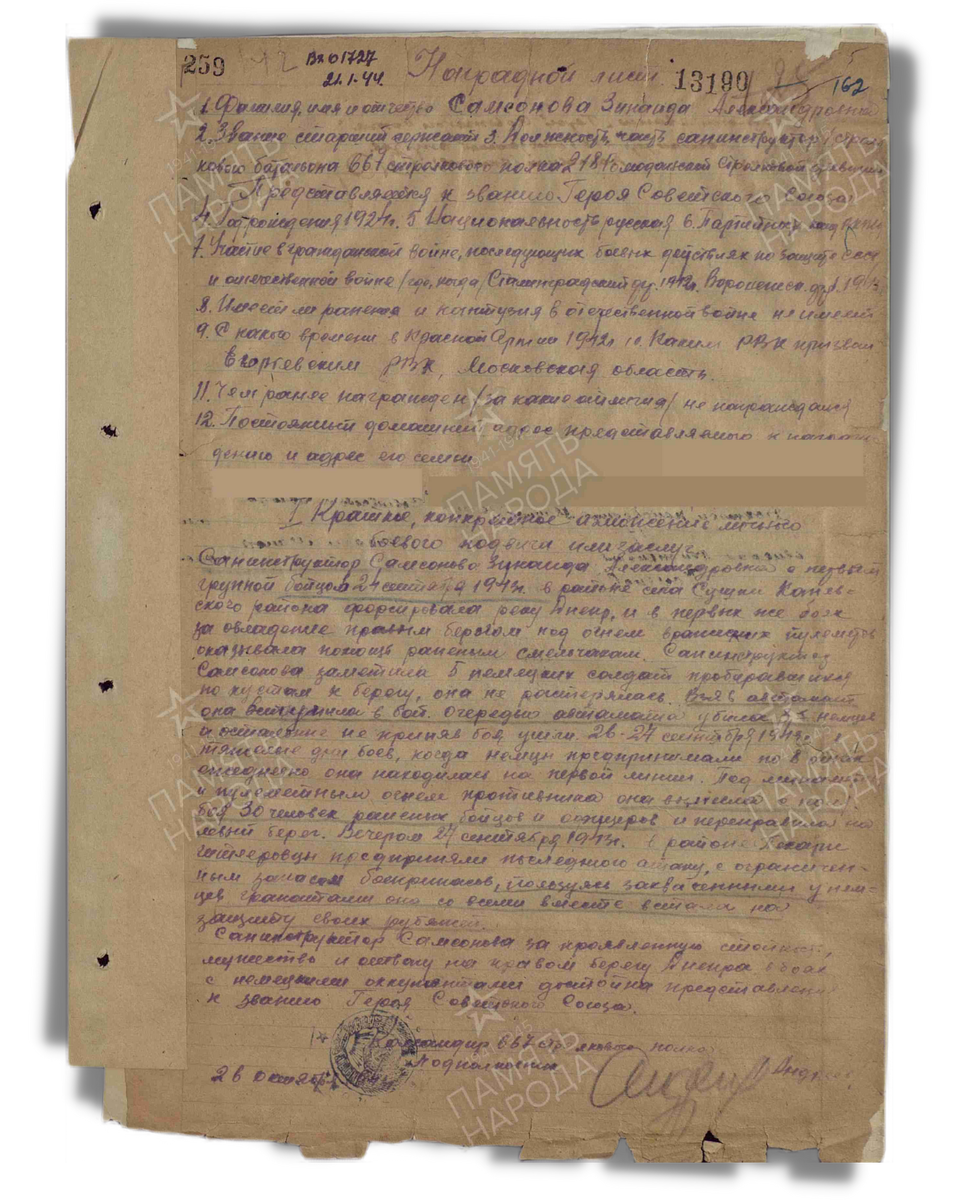 259
Вх 01727
21.1.44
Наградной лист 13190
162
1. Фамилия, имя и отчество Самсонова Зинаида Александровна
2. Звание старший сержант 3. Должность, часть санинструктор стрел-
кового батальона 667 стрелкового полка 218 стрелковой дивизии
Представляется к званию Героя Советского Союза
4. Год рождения 1924г. 5. Национальность русская 6. Партийность
7. Участие в гражданской войне, последующих боевых действиях по защите СССР
и отечественной войне /где, когда/ Сталинградский фр. 1942г. Воронежск. фр. 1943
8. Имеет ли ранения и контузии в отечественной войне не имеет
9. С какого времени в Красной Армии 1942г 10. Каким РВК призван
Егорьевским РВК, Московская область.
11. Чем ранее награжден /за какие отличия/ не награждался
12. Постоянный домашний адрес представляемого к награж-
дению и адрес его семьи
I Краткое, конкретное изложение личного
боевого подвига или заслуг
Санинструктор Самсонова Зинаида Александровна с первой
группой бойцов 24 сентября 1943г. в районе села Сушки Канев-
ского района форсировала реку Днепр, и в первых же боях
за овладение правым берегом под огнем вражеских пулеметов
оказывала помощь раненым смельчакам. Санинструктор
Самсонова заметила 5 немецких солдат пробиравшихся
по кустам к берегу, она не растерялась. Взяв автомат
она вступила в бой. Очередью автомата убила 3х немцев
а остальные не приняв боя ушли. 26-27 сентября 1943г. в
тяжелые дни боев, когда немцы предпринимали по 8 атак
ежедневно она находилась на первой линии. Под минами
и пулеметным огнем противника она вынесла с поля
боя 30 человек раненых бойцов и офицеров и переправила на
левый берег. Вечером 27 сентября 1943г. в районе Пекари
гитлеровцы предприняли последнюю атаку, с ограничен-
ным запасом боеприпасов, пользуясь захваченными у нем-
цев гранатами она со всеми вместе встала на
защиту своих рубежей.
Санинструктор Самсонова за проявленную стойкость,
мужество и отвагу на правом берегу Днепра в боях
с немецкими оккупантами достойна представления
к званию Героя Советского Союза.
Командир 667 стрелкового полка
Подполковник
26 октября
ПАМЯТЬ НАРОДА